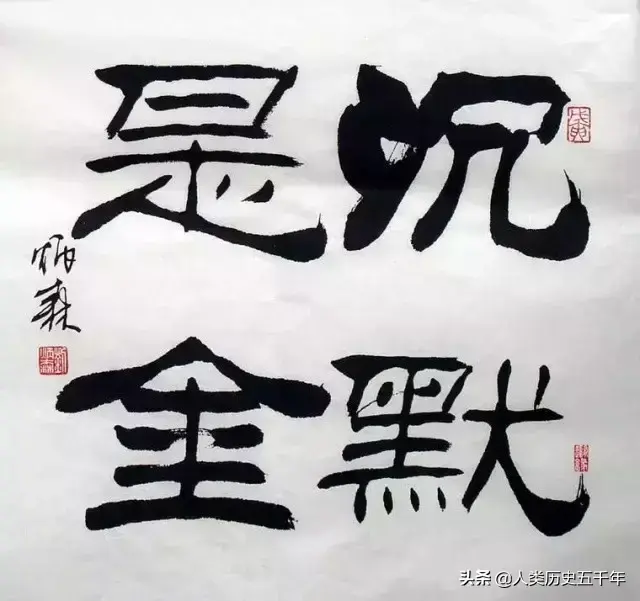 沉默
是金
炳森
头条 @人类历史五千年